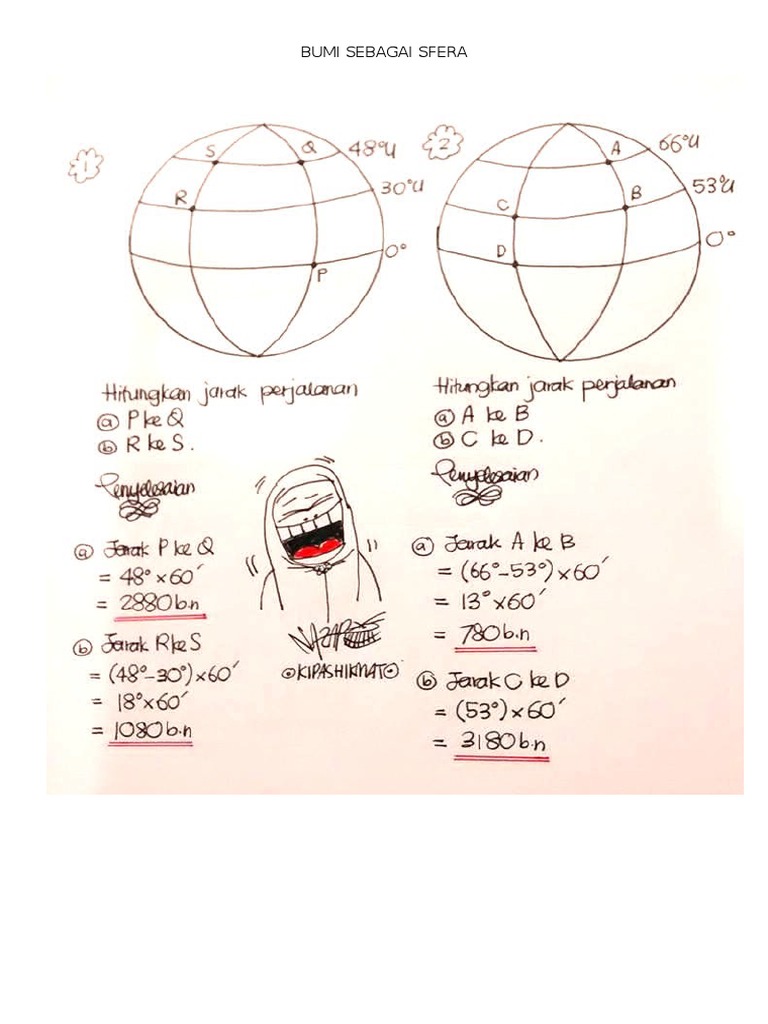 BUMI SEBAGAI SFERA
1
S
Q
48°U
R
30°U
0°
P
Hitungkan jarak perjalanan
a P ke Q
b R ke S.
Penyelesaian
a Jarak P ke Q
= 48° × 60′
= 2880 b.n
b Jarak R ke S
= (48°-30°) × 60′
= 18° × 60′
= 1080 b.n
@KIPASHIKMATO
2
A
66°U
B
53°U
C
D
0°
Hitungkan jarak perjalanan
a A ke B
b C ke D.
Penyelesaian
a Jarak A ke B
= (66°-53°) × 60′
= 13° × 60′
= 780 b.n
b Jarak C ke D
= (53°) × 60′
= 3180 b.n